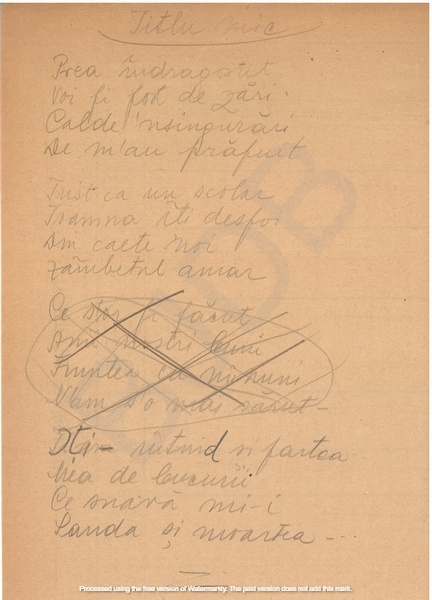 Titlu mic
Prea îndrăgostit
Voi fi fost de zări
Calde 'nsingurări
De m'au prăfuit
Trist ca un scolar
Toamna îti desfoi
Am caete noi
Zâmbetul amar
Ce s'or fi făcut
Anii nostri buni
Fruntea cu minuni
N'am s'o mai sărut -
Stiu - uitând si partea
Mea de bucurii
Ce suavă mi-i
Landa și moartea - ...
Processed using the free version of Watermarkly. The paid version does not add this mark.